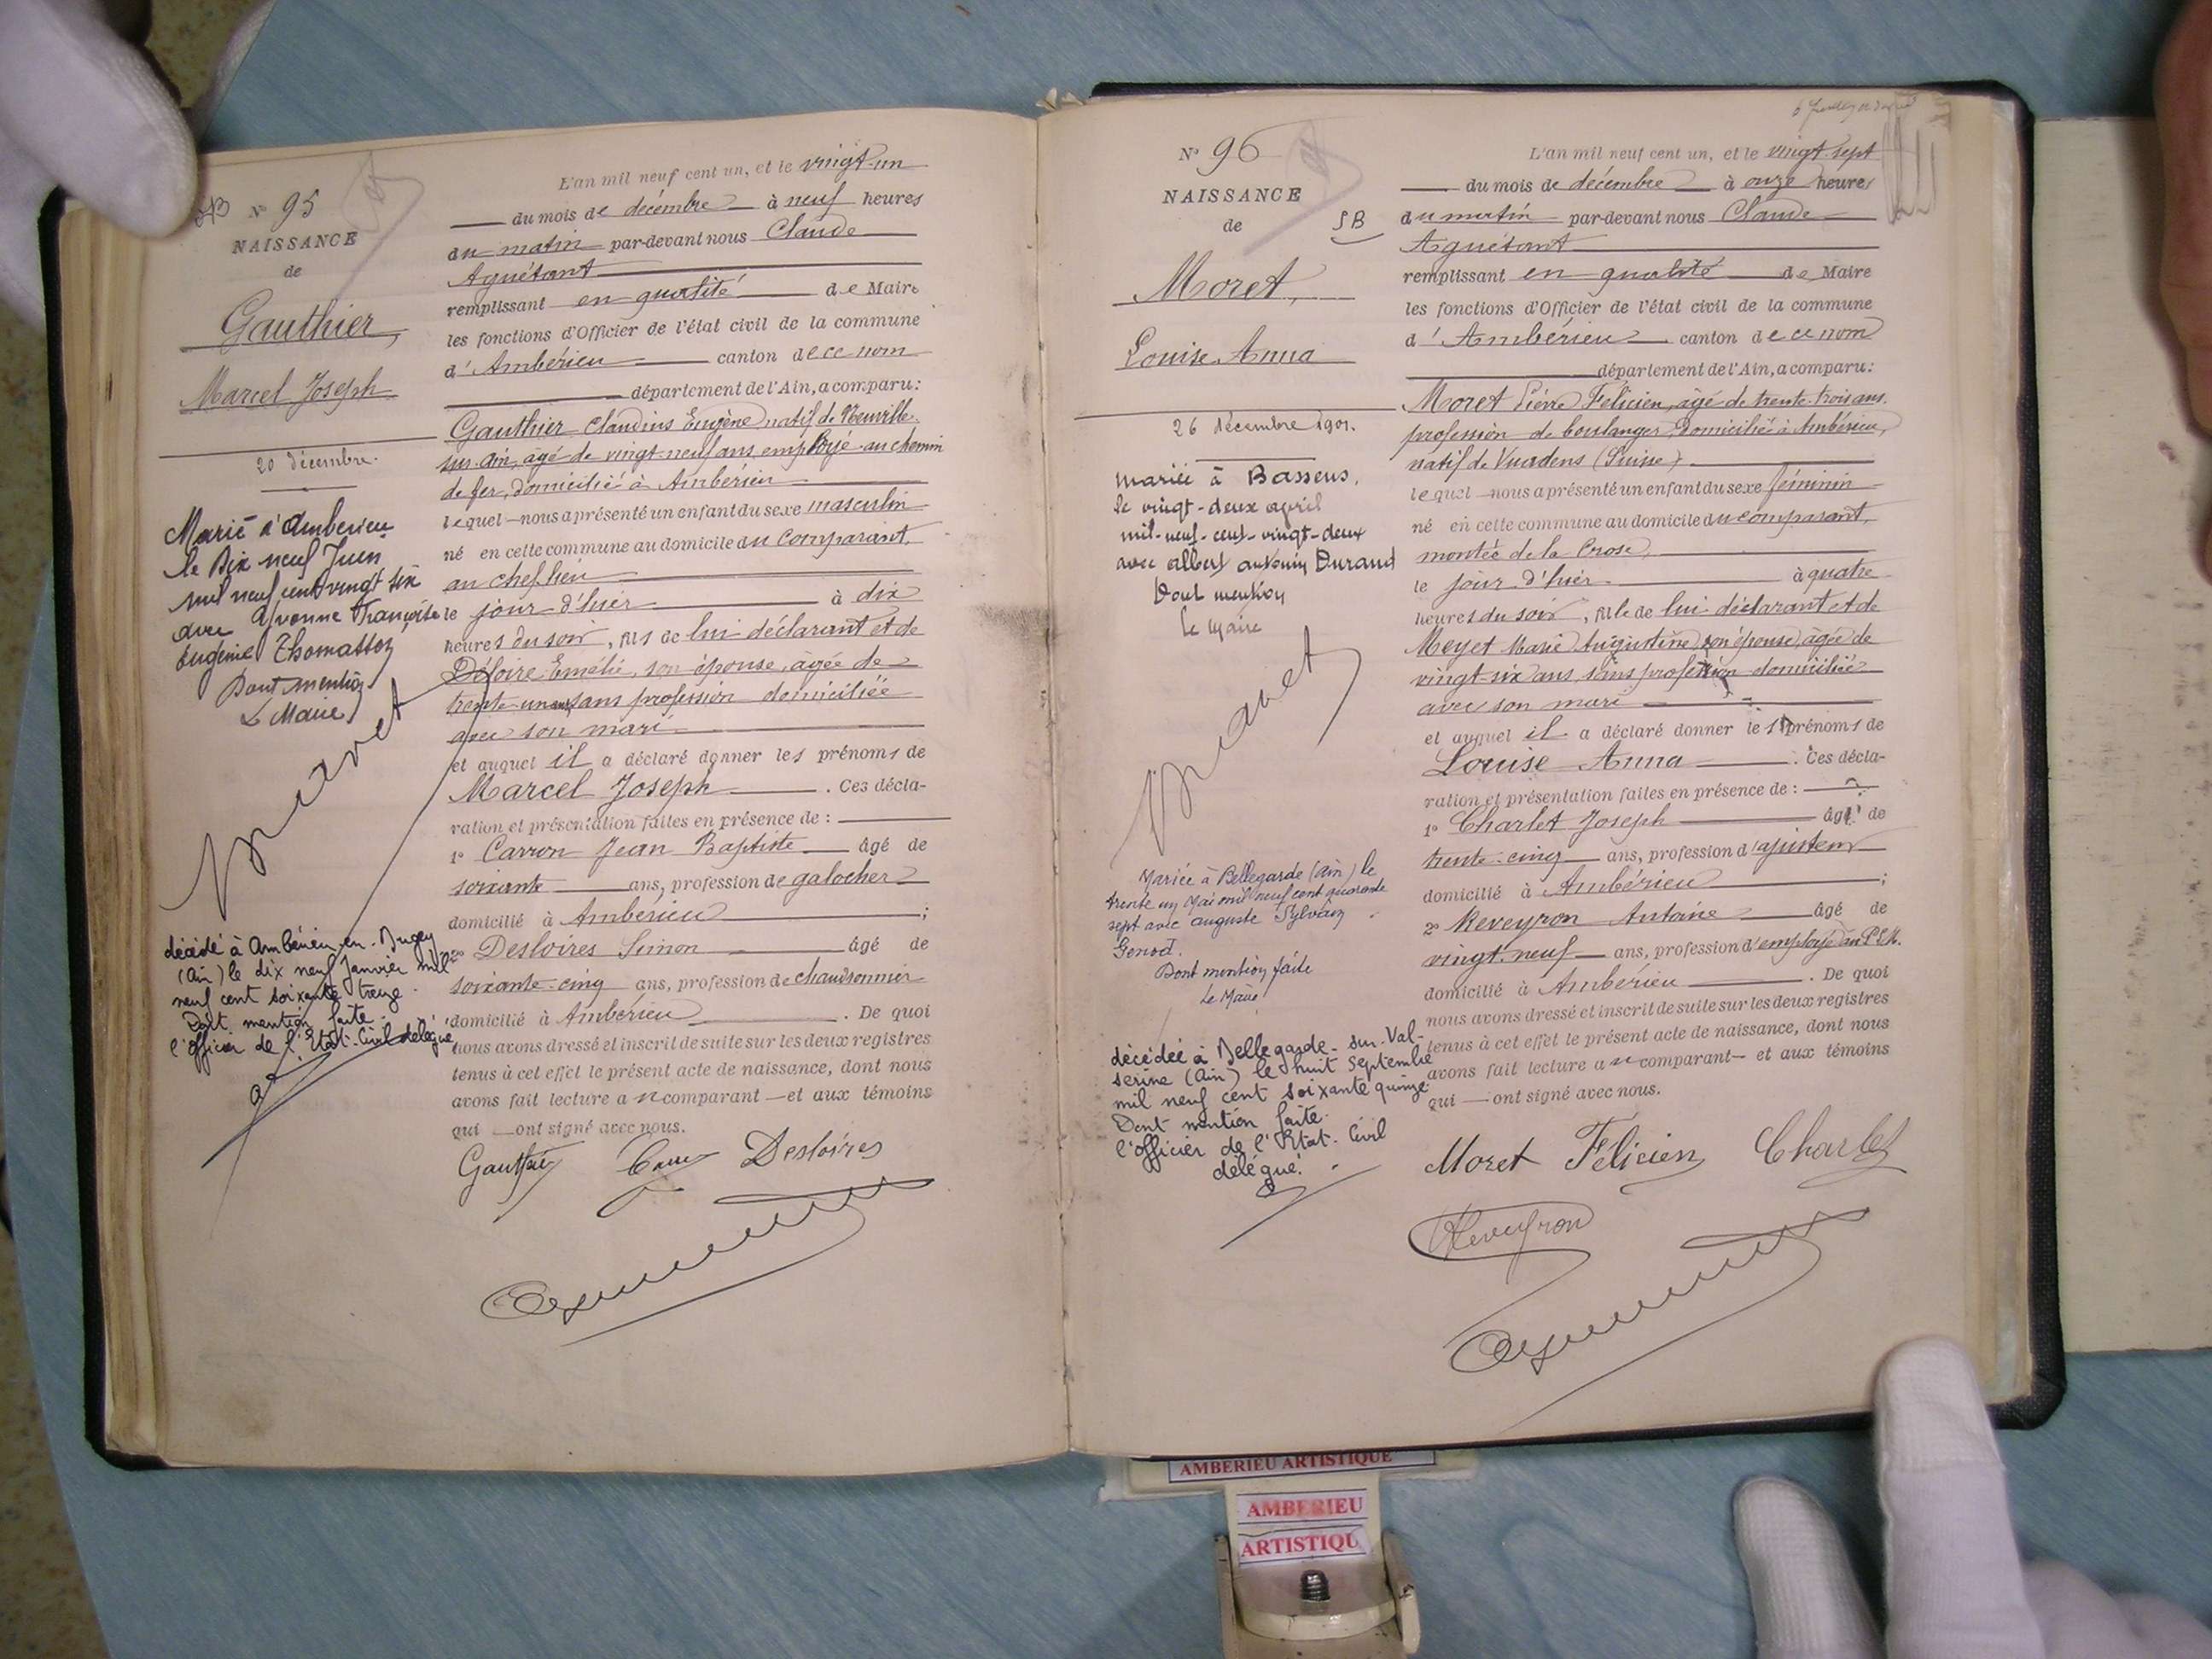 N° 95
NAISSANCE
de
Gauthier,
Marcel Joseph
20 décembre.
Marié à Amberieu
le Dix neuf Juin
mil neuf cent vingt six
avec Yvonne Françoise
Eugénie Thomasson
Dont mention
Le Maire
décédé à Ambérieu-en-Bugey
(Ain) le dix neuf Janvier mil
neuf cent soixante treize.
Dont mention faite.
l'officier de l'Etat-Civil délégué
L'an mil neuf cent un, et le vingt-un
du mois de décembre à neuf heures
du matin par-devant nous Claude
Aguétant
remplissant en qualité de Maire
les fonctions d'Officier de l'état civil de la commune
d'Ambérieu canton de ce nom
département de l'Ain, a comparu:
Gauthier Claudius Eugène natif de Neuville-
sur-Ain, âgé de vingt-neuf ans, employé au chemin
de fer, domicilié à Ambérieu
lequel nous a présenté un enfant du sexe masculin
né en cette commune au domicile du comparant,
au chef-lieu
le jour d'hier à dix
heures du soir, fils de lui déclarant et de
Déloire Emélie, son épouse, âgée de
trente-un ans, sans profession domiciliée
avec son mari
et auquel il a déclaré donner les prénoms de
Marcel Joseph. Ces décla-
ration et présentation faites en présence de :
1° Carron Jean Baptiste âgé de
soixante ans, profession de galocher
domicilié à Ambérieu ;
2° Desloires Simon âgé de
soixante-cinq ans, profession de chaudronnier
domicilié à Ambérieu. De quoi
nous avons dressé et inscrit de suite sur les deux registres
tenus à cet effet le présent acte de naissance, dont nous
avons fait lecture au comparant et aux témoins
qui ont signé avec nous.
Gauthier Desloires
N° 96
NAISSANCE
de
SB
Moret,
Louise Anna
26 décembre 1901.
mariée à Bassens,
le vingt-deux avril
mil-neuf-cent-vingt-deux
avec Albert Antonin Durand
Dont mention
Le Maire
Mariée à Bellegarde (Ain) le
trente un Mai mil neuf cent quarante
sept avec Auguste Sylvain
Genod.
Dont mention faite
Le Maire
décédée à Bellegarde-sur-Val-
serine (Ain) le huit Septembre
mil neuf cent soixante quinze
Dont mention faite.
l'officier de l'Etat-Civil
délégué.
L'an mil neuf cent un, et le vingt-sept
du mois de décembre à onze heures
du matin par-devant nous Claude
Aguétant
remplissant en qualité de Maire
les fonctions d'Officier de l'état civil de la commune
d'Ambérieu canton de ce nom
département de l'Ain, a comparu:
Moret Pierre Félicien, âgé de trente-trois ans.
profession de boulanger, domicilié à Ambérieu,
natif de Vuadens (Suisse)
lequel nous a présenté un enfant du sexe féminin
né en cette commune au domicile du comparant,
montée de la Crose,
le jour d'hier à quatre
heures du soir, fille de lui déclarant et de
Meyet Marie Augustine, son épouse, âgée de
vingt-six ans, sans profession domiciliée
avec son mari
et auquel il a déclaré donner les prénoms de
Louise Anna. Ces décla-
ration et présentation faites en présence de :
1° Charlet Joseph âgé de
trente-cinq ans, profession d'ajusteur
domicilié à Ambérieu ;
2° Reveyron Antoine âgé de
vingt-neuf ans, profession d'employé au P.L.M.
domicilié à Ambérieu. De quoi
nous avons dressé et inscrit de suite sur les deux registres
tenus à cet effet le présent acte de naissance, dont nous
avons fait lecture au comparant et aux témoins
qui ont signé avec nous.
Moret Félicien Charlet
Reveyron
AMBERIEU ARTISTIQUE
AMBERIEU
ARTISTIQU